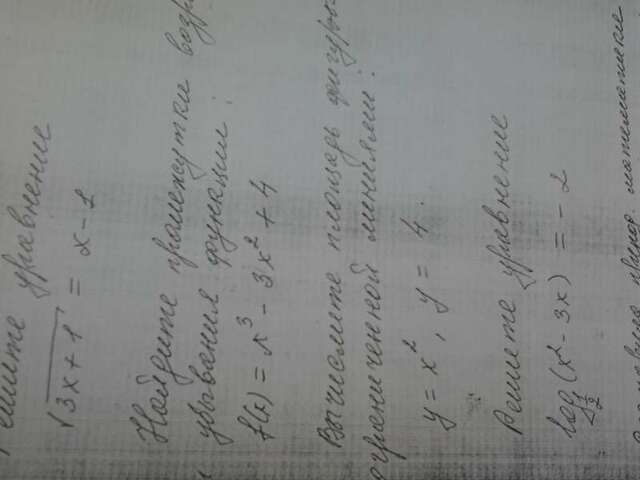 Решите уравнение
√3x + 1 = x - 1
Найдите промежутки возр
и убывания функции:
f(x) = x³ - 3x² + 4
Вычислите площадь фигуры
ограниченной линиями:
y = x², y = 4.
Решите уравнение
log½(x² - 3x) = - 2
препод. математики